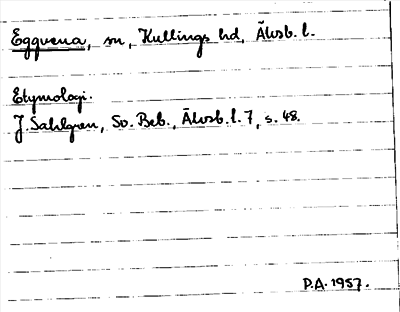 Eggvena, sn, Kullings hd, Älvsb. l.
Etymologi.
J. Sahlgren, Sv. Beb., Älvsb. l. 7, s. 48.
P.A. 1957.